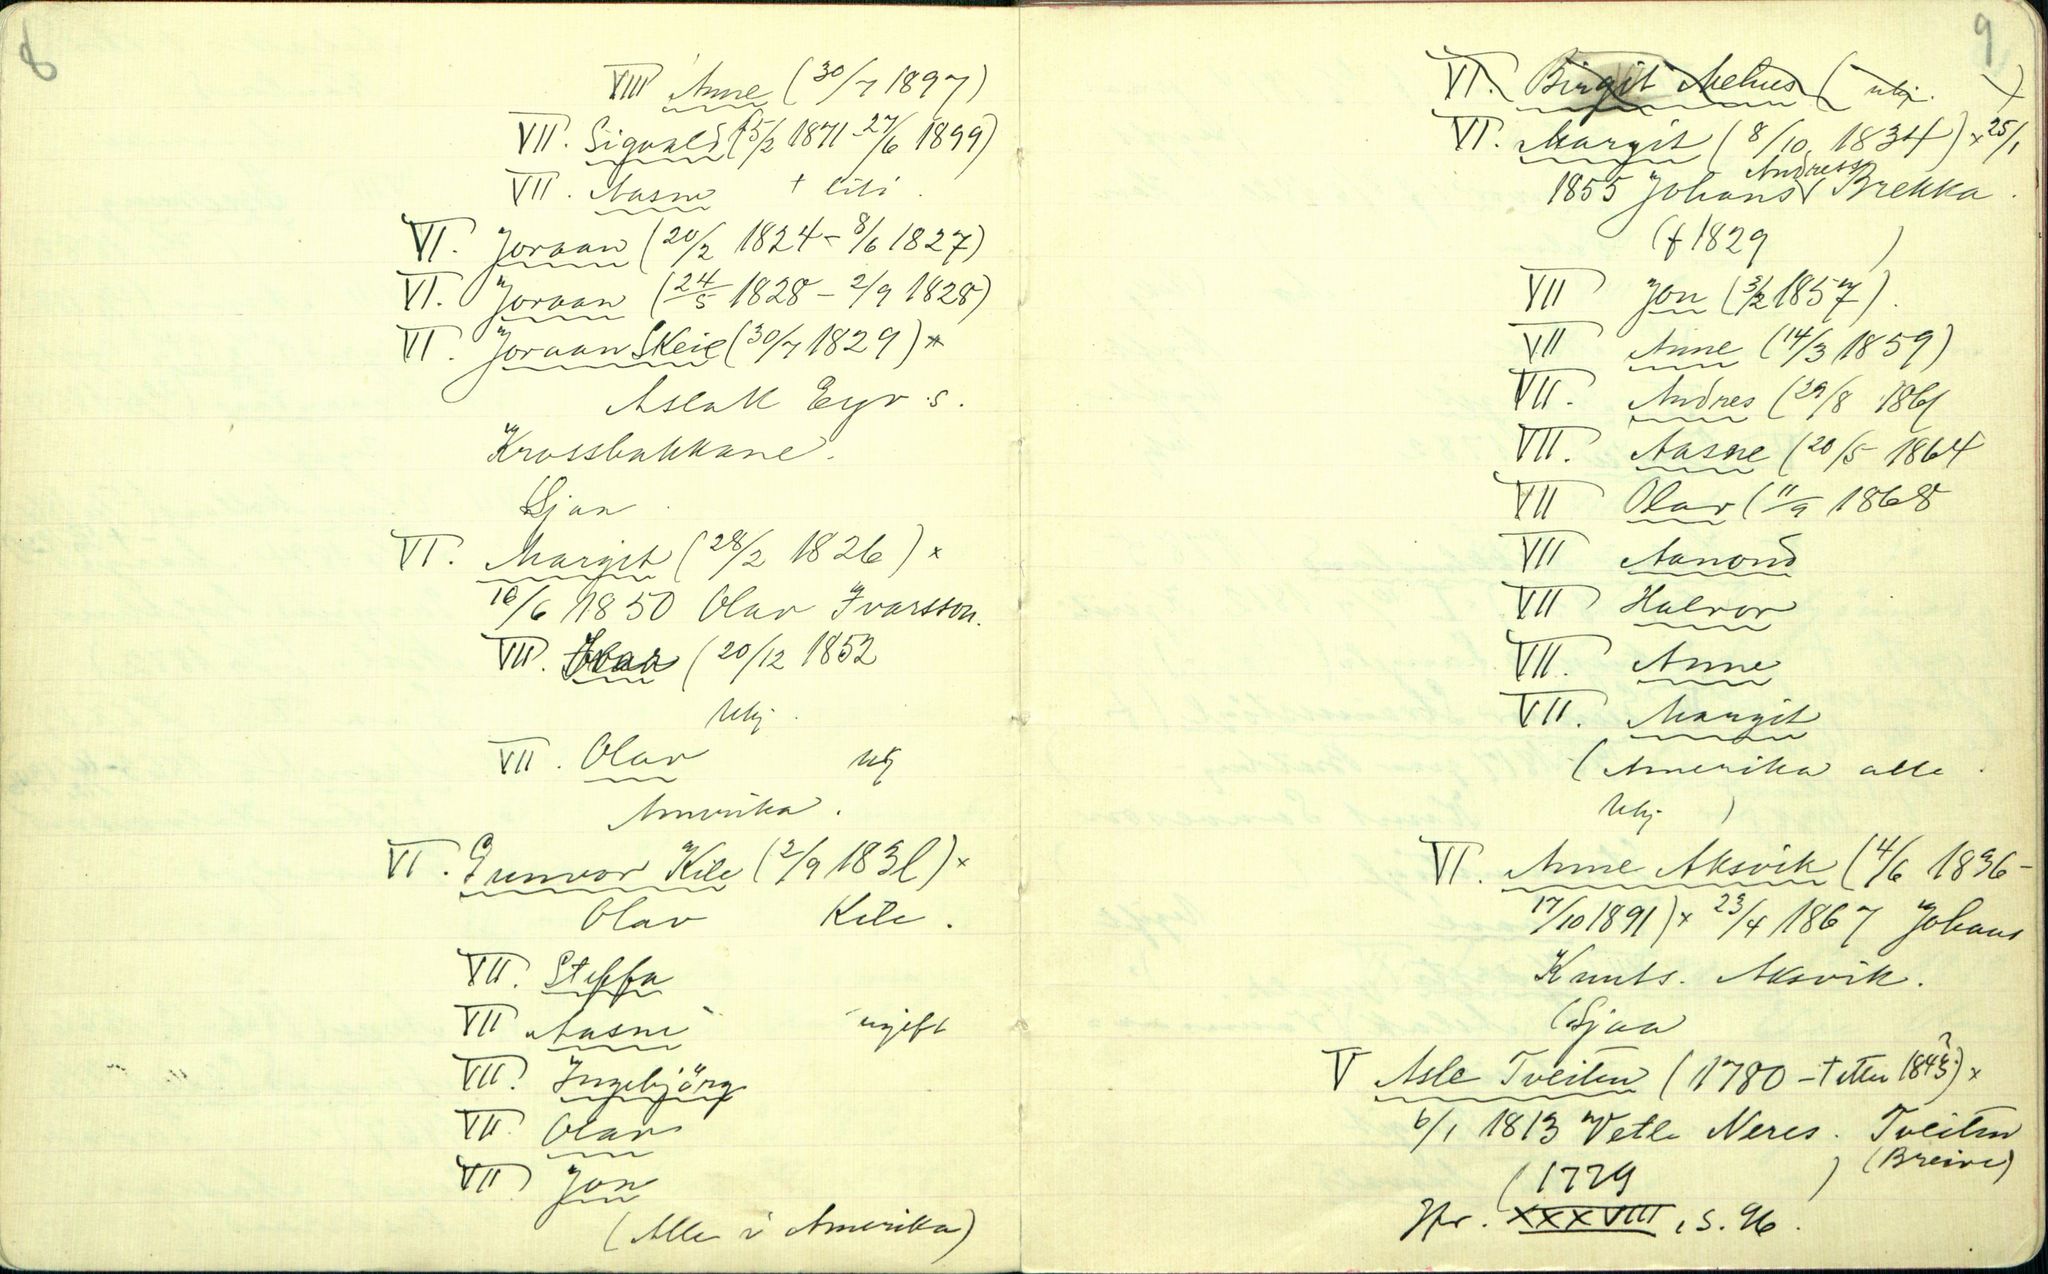 8
VIII Anne (30/7 1897)
VII. Sigvald (15/2 1871 - 27/6 1899)
VII. Aasne + liti.
VI. Joraan (20/2 1824 - 8/6 1827)
VI. Joraan (24/5 1828 - 2/9 1828)
VI. Joraan Skeie (30/7 1829) x
Aslak Eyv. s.
Krossbakkane.
Sjaa
VI. Margit (28/2 1826) x
16/6 1850 Olav Ivarsson.
VII. (20/12 1852
Ukj.
VII. Olav ukj
Amerika.
VI. Gunvor Kile (2/9 1831) x
Olav Kile.
VII. Steffa
VII Aasne ugift
VII. Ingebjörg
VII. Olav
VII Jon
(Alle i Amerika)
9
VI. Birgit Mehus (ukj. )
VI. Margit (8/10 1834) x 25/1
1855 Johans Andress Brekka.
(f 1829 )
VII Jon (3/2 1857).
VII Anne (14/3 1859)
VII. Andres (29/8 1861
VII. Aasne (20/5 1864
VII Olav (11/9 1868
VII Aanond
VII Halvor
VII. Anne
VII. Margit
(Amerika alle.
Ukj )
VI. Anne Aksvik (4/6 1836 -
17/10 1891) x 23/4 1867 Johans
Knuts. Aksvik.
(Sjaa
V Asle Tveiten (1780 - + etter 1843?) x
6/1 1813 Vetle Neres. Tveiten
(1779 ) (Breive)
Jfr. XXXVIII, s. 96.